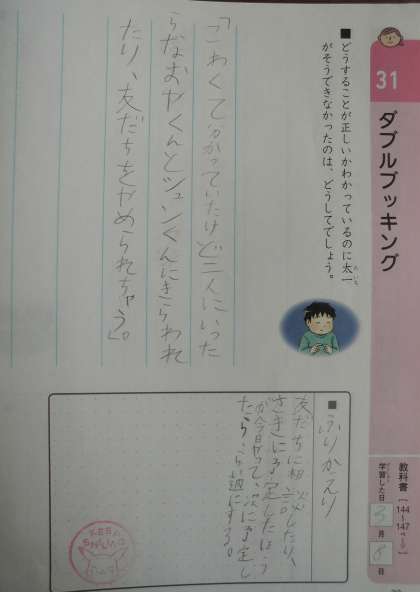 31
ダブルブッキング
■どうすることが正しいかわかっているのに太一
がそうできなかったのは、どうしてでしょう。
たいち
「こわくて分かっていたけど二人にいった
らなおやくんとシュンくんにきらわれ
たり、友だちをやめられちゃう。」
教科書〔144～147ページ〕
学習した日 3月8日
■ふりかえり
友だちに相談したり、
さきによ定したほう
が今日やって、次によ定し
たら、らい週にする。